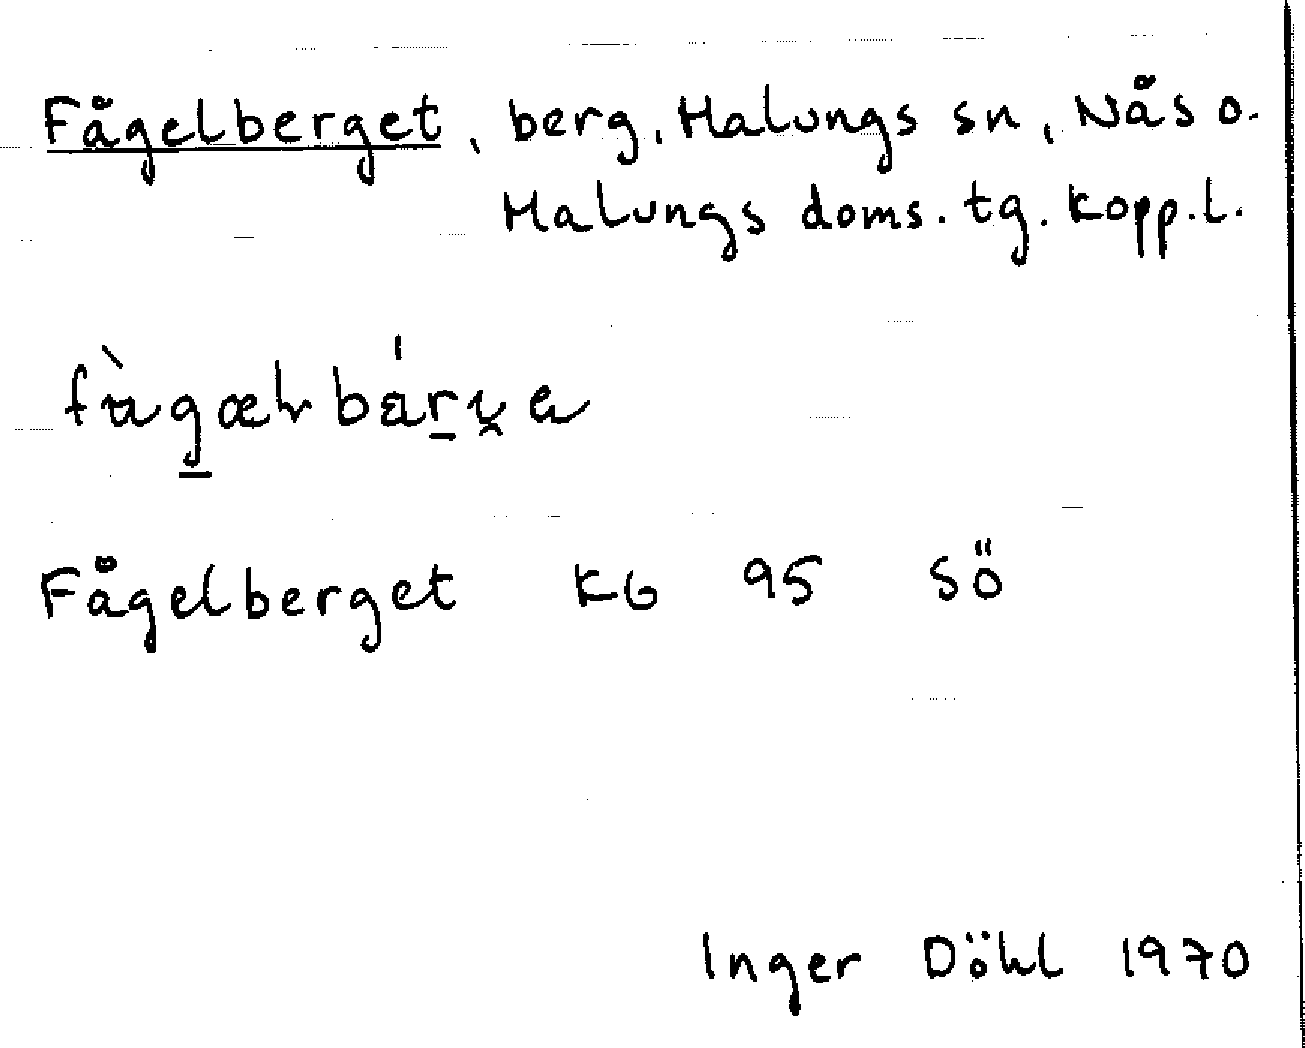 Fågelberget, berg, Malungs sn, Nås o.
Malungs doms. tg. Kopp.l.
Fågelberget K6 95 SÖ
Inger Döhl 1970